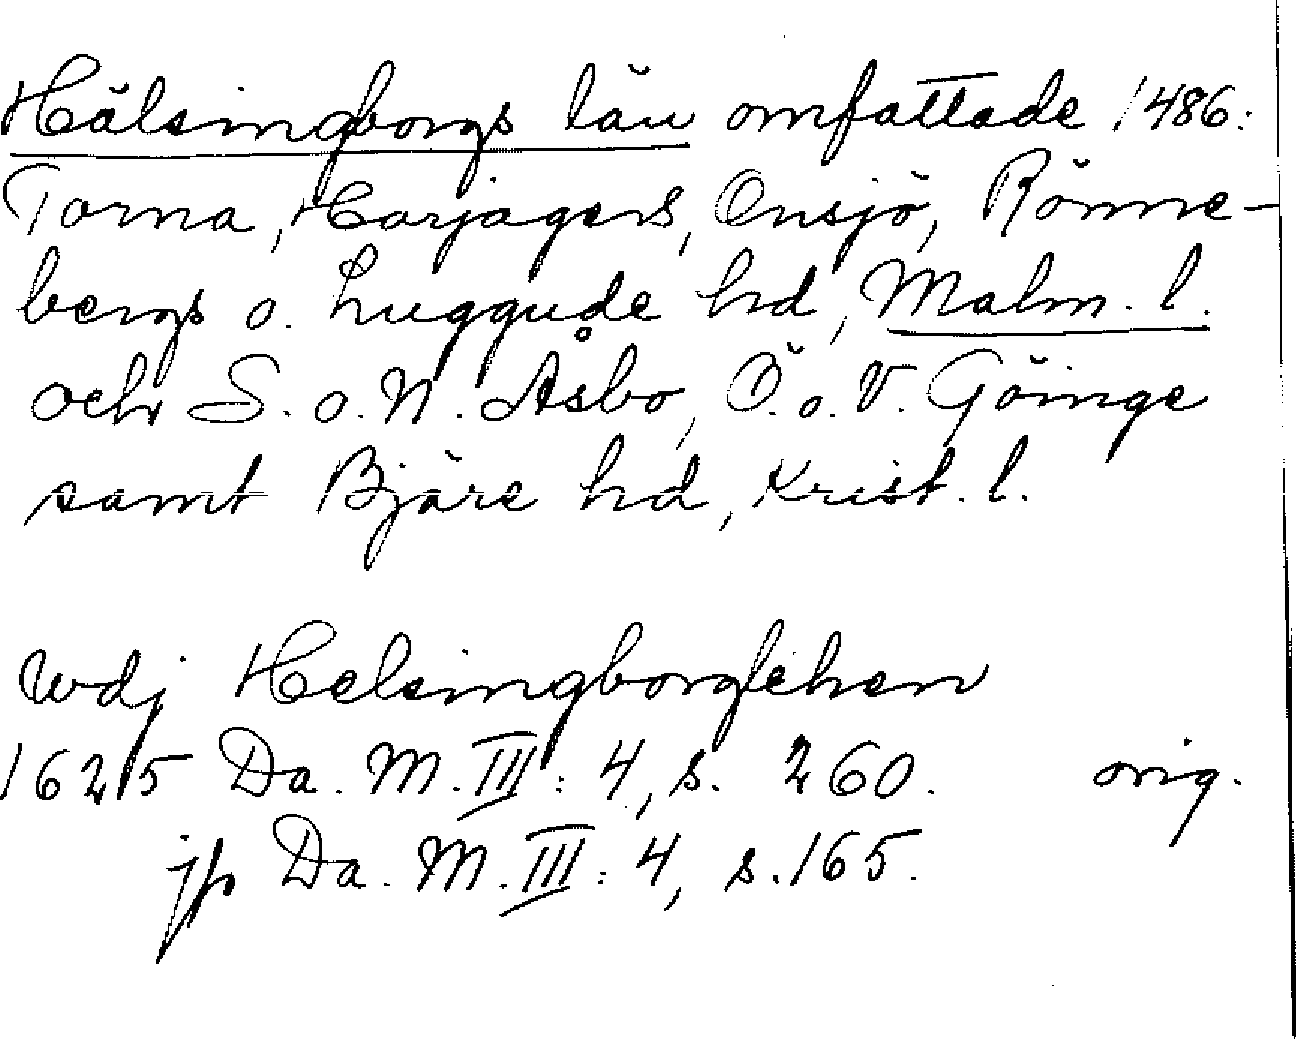 Hälsingborgs län omfattade 1486:
Torna, Harjagers, Onsjö, Rönne-
bergs o. Luggude hd, Malm. l.
och S. o. N. Åsbo, Ö. o. V. Göinge
samt Bjäre hd, Krist. l.
wdj Helsingborglehen
1625 Da. M. III: 4, s. 260. orig.
jfr Da. M. III: 4, s. 165.